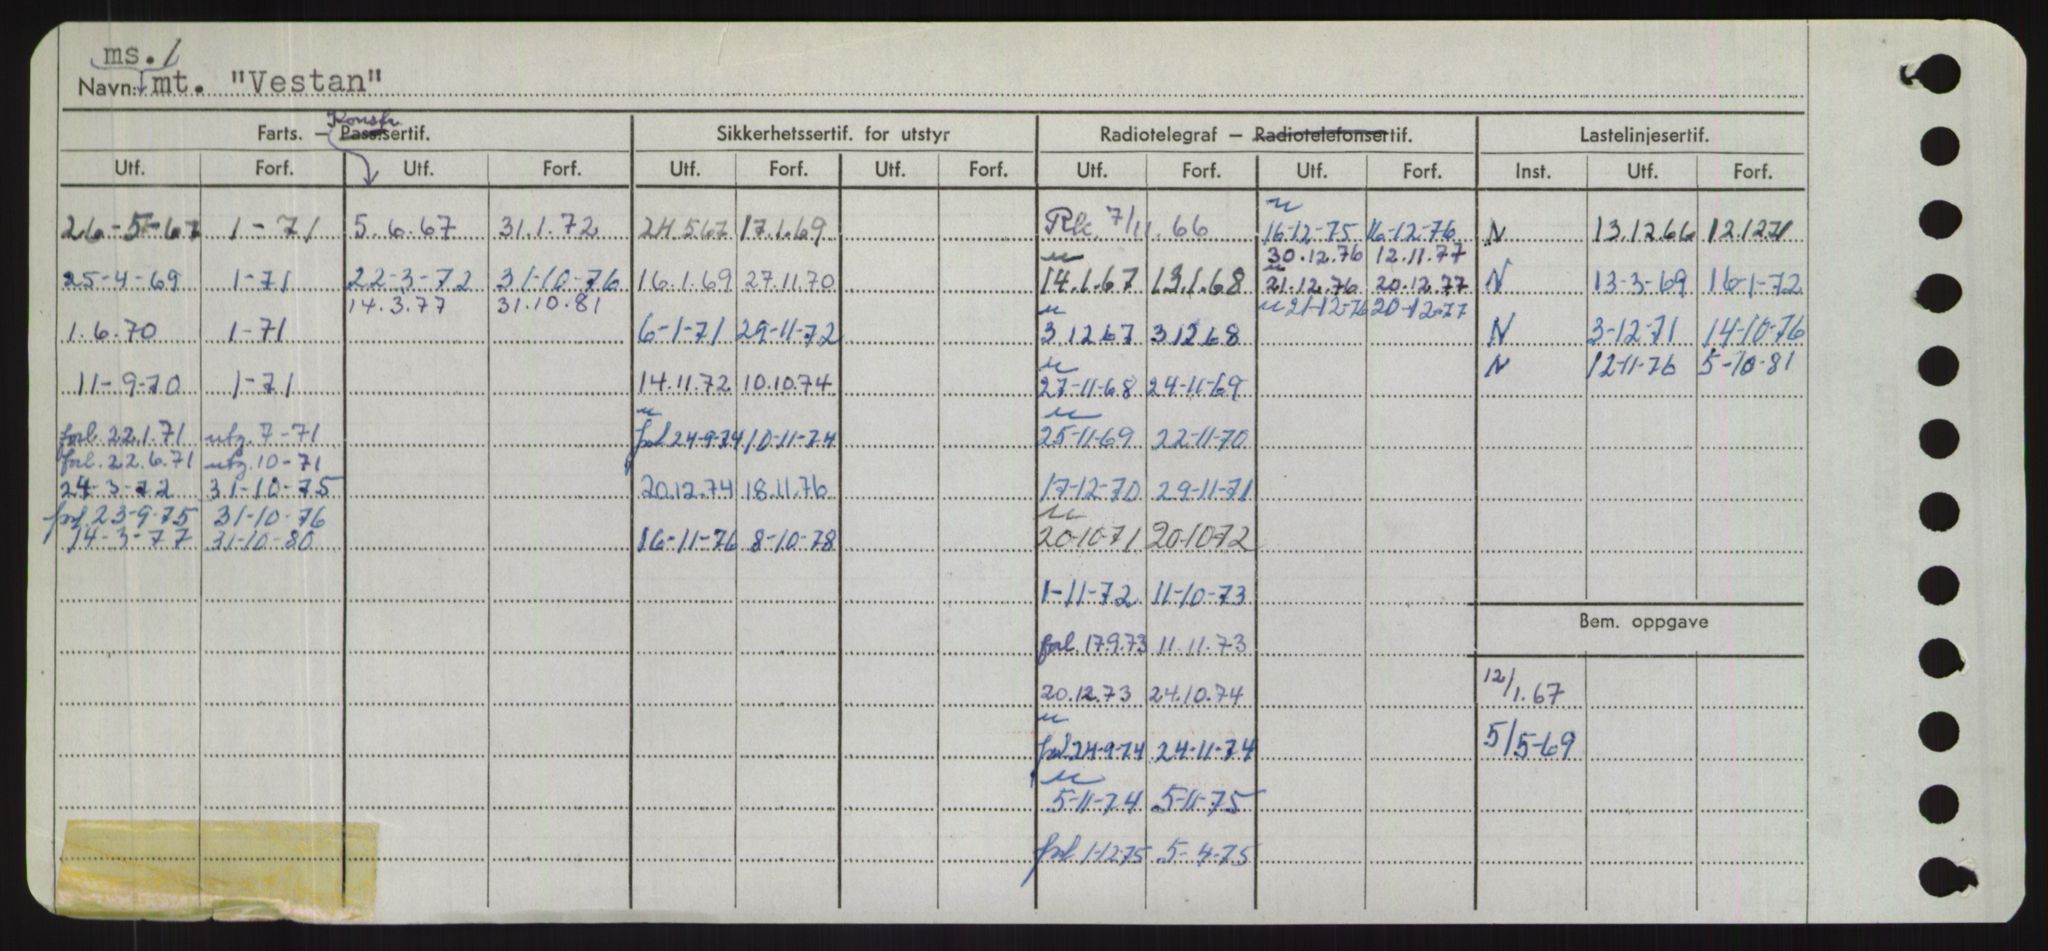 ms. /
Navn: mt. "Vestan"
Konstr.
Farts. — Pass.sertif. Sikkerhetssertif. for utstyr Radiotelegraf — Radiotelefonsertif. Lastelinjesertif.
Utf. Forf. Utf. Forf. Utf. Forf. Utf. Forf. Utf. Forf. Utf. Forf. Inst. Utf. Forf.
26-5-67 1-71 5.6.67 31.1.72 24.5.67 17.1.69 Rk. 7/11.66 16-12-75 16-12-76 N 13.12.66 12.12.71
30.12.76 12.11.77
25-4-69 1-71 22-3-72 31-10-76 16.1.69 27.11.70 14.1.67 13.1.68 21.12.76 20.12.77 N 13-3-69 16-1-72
14.3.77 31.10.81 21-12-76 20-12-77
1.6.70 1-71 6-1-71 29-11-72 3.12.67 3.12.68 N 3-12-71 14-10-76
N 12-11-76 5-10-81
11-9-70 1-71 14.11.72 10.10.74 27-11-68 24-11-69
forl. 22.1.71 utg. 7-71 forl 24-9-74 10-11-74 25-11-69 22-11-70
forl. 22.6.71 utg. 10-71
24-3-72 31-10-75 20.12.74 18.11.76 17-12-70 29-11-71
forl. 23-9-75 31-10-76
14-3-77 31-10-80 16-11-76 8-10-78 20-10-71 20-10-72
1-11-72 11-10-73
Bem. oppgave
forl. 17.9.73 11.11.73
20.12.73 24.10.74 12/1.67
forl. 24-9-74 24-11-74 5/5-69
5-11-74 5-11-75
forl 1-12-75 5-4-75